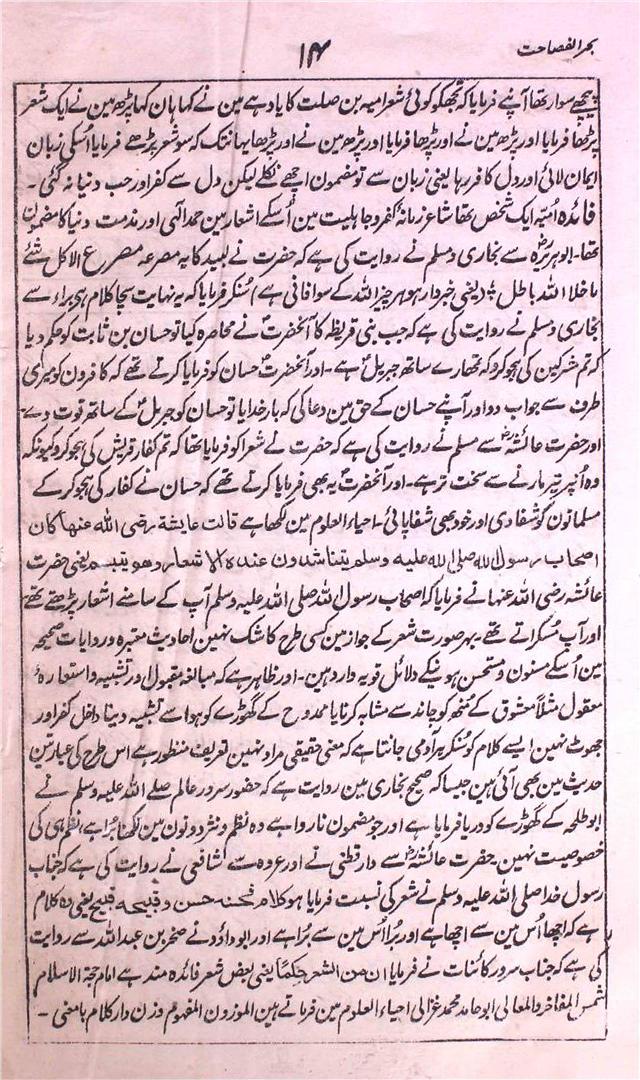 بحر الفصاحت
۱۴
پیچھے سوار تھا آپنے فرمایا کہ تجھکو کوئی شعر امیہ بن صلت کا یاد ہے مین نے کہا ہان کہا پڑھ مین نے ایک شعر
پڑھا فرمایا اور پڑھ مین نے اور پڑھا فرمایا اور پڑھ مین نے اور پڑھا یہانتک کہ سو شعر پڑھے فرمایا اُسکی زبان
ایمان لائی اور دل کافر رہا یعنی زبان سے تو مضمون اچھے نکلے لیکن دل سے کفر اور حب دنیا نہ گئی ۔
فائدہ اُمیہ ایک شخص تھا شاعر زمانۂ کفر و جاہلیت مین اُسکے اشعار مین حمد الٰہی اور مذمت دنیا کا مضمون
تھا۔ ابوہریرہؓ سے بخاری و مسلم نے روایت کی ہے کہ حضرت نے لبید کا یہ مصرعہ مصرع الا کل شئے
ماخلا اللہ باطل ؛ (یعنی خبردار ہو ہر چیز اللہ کے سوا فانی ہے) سُنکر فرمایا کہ یہ نہایت سچا کلام ہی براء سے
بخاری و مسلم نے روایت کی ہے کہ جب بنی قریظہ کا آنحضرتؐ نے محاصرہ کیا تو حسان بن ثابت کو حکم دیا
کہ تم مشرکین کی ہجو کرو کہ تمھارے ساتھ جبریلؑ ہے۔ اور آنحضرتؐ حسان کو فرمایا کرتے تھے کہ کافرون کو میری
طرف سے جواب دو اور آپنے حسان کے حق مین دعا کی کہ بار خدایا تو حسان کو جبریلؑ کے ساتھ قوت دے۔
اور حضرت عائشہؓ سے مسلم نے روایت کی ہے کہ حضرت نے شعرا کو فرمایا تھا کہ تم کفار قریش کی ہجو کرو کیونکہ
وہ اُنپر تیر مارنے سے سخت تر ہے۔ اور آنحضرتؐ یہ بھی فرمایا کرتے تھے کہ حسان نے کفار کی ہجو کر کے
مسلمانون کو شفا دی اور خود بھی شفا پائی۔ احیاء العلوم مین لکھا ہے قالت عایشة رضی اللہ عنہا کان
اصحاب رسول اللہ صلی اللہ علیہ وسلم یتناشدون عندہ الاشعار وھو یتبسم یعنی حضرت
عائشہ رضی اللہ عنہا نے فرمایا کہ اصحاب رسول اللہ صلی اللہ علیہ وسلم آپ کے سامنے اشعار پڑھتے تھے
اور آپ مُسکراتے تھے۔ بہر صورت شعر کے جواز مین کسی طرح کا شک نہین احادیث معتبرہ و روایات صحیحہ
مین اُسکے مسنون و مستحسن ہونیکے دلائل قویہ وارد ہین۔ اور ظاہر ہے کہ مبالغہ مقبول اور تشبیہ و استعارۂ
معقول مثلاً معشوق کے مُنھ کو چاند سے مشابہ کرنا یا ممدوح کے گھوڑے کو ہوا سے تشبیہ دینا داخل کفر اور
جھوٹ نہین ایسے کلام کو سُنکر ہر آدمی جانتا ہے کہ معنی حقیقی مراد نہین تعریف منظور ہے اس طرح کی عبارتین
حدیث مین بھی آئی ہین جیسا کہ صحیح بخاری مین روایت ہے کہ حضور سرور عالم صلے اللہ علیہ وسلم نے
ابو طلحہ کے گھوڑے کو دریا فرمایا ہے اور جو مضمون ناروا ہے وہ نظم و نثر دونون مین لکھنا بُرا ہے نظم ہی کی
خصوصیت نہین۔ حضرت عائشہؓ سے دار قطنی نے اور عروہ سے شافعی نے روایت کی ہے کہ جناب
رسول خدا صلی اللہ علیہ وسلم نے شعر کی نسبت فرمایا ھو کلام فحسنہ حسن و قبیحہ قبیح یعنی وہ کلام
ہے کہ اچھا اُس مین سے اچھا ہے اور بُرا اُس مین سے بُرا ہے اور ابوداؤد نے صخر بن عبداللہ سے روایت
کی ہے کہ جناب سرور کائنات نے فرمایا ان من الشعر حِکمًا یعنی بعض شعر فائدہ مند ہے امام حجۃ الاسلام
شمس المفاخر والمعالی ابو حامد محمد غزالی احیاء العلوم مین فرماتے ہین الموزون المفہوم وزن دار کلام بامعنی ۔